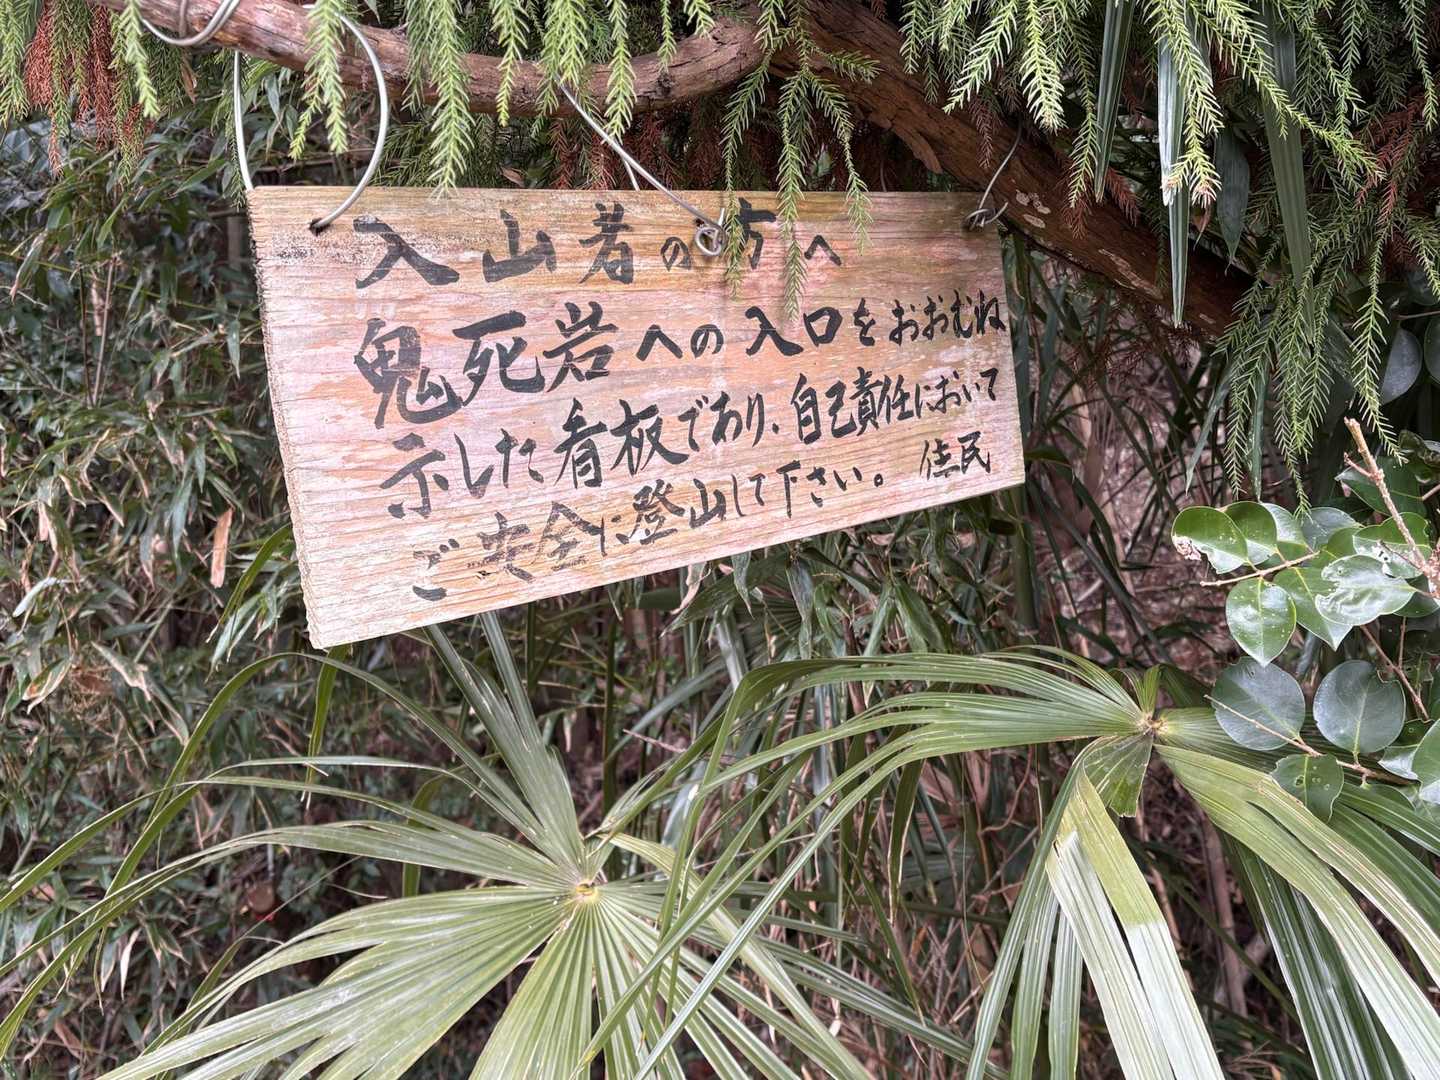 入山者の方へ
鬼死岩への入口をおおむね
示した看板であり、自己責任において
ご安全に登山して下さい。 住民